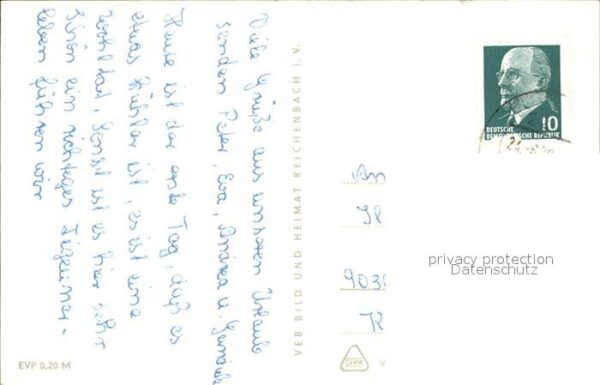 Viele Grüße aus unserem Urlaub
senden Peter, Eva, u.
Heute ist der erste Tag, daß es
etwas kühler ist, es ist eine
Wohltat, sonst ist es hier sehr
schön ein richtiges Zigeuner-
leben führen wir
VEB BILD UND HEIMAT REICHENBACH I. V.
EVP 0,20 M
10
DEUTSCHE
DEMOKRATISCHE REPUBLIK
An
903
privacy protection
Datenschutz
V